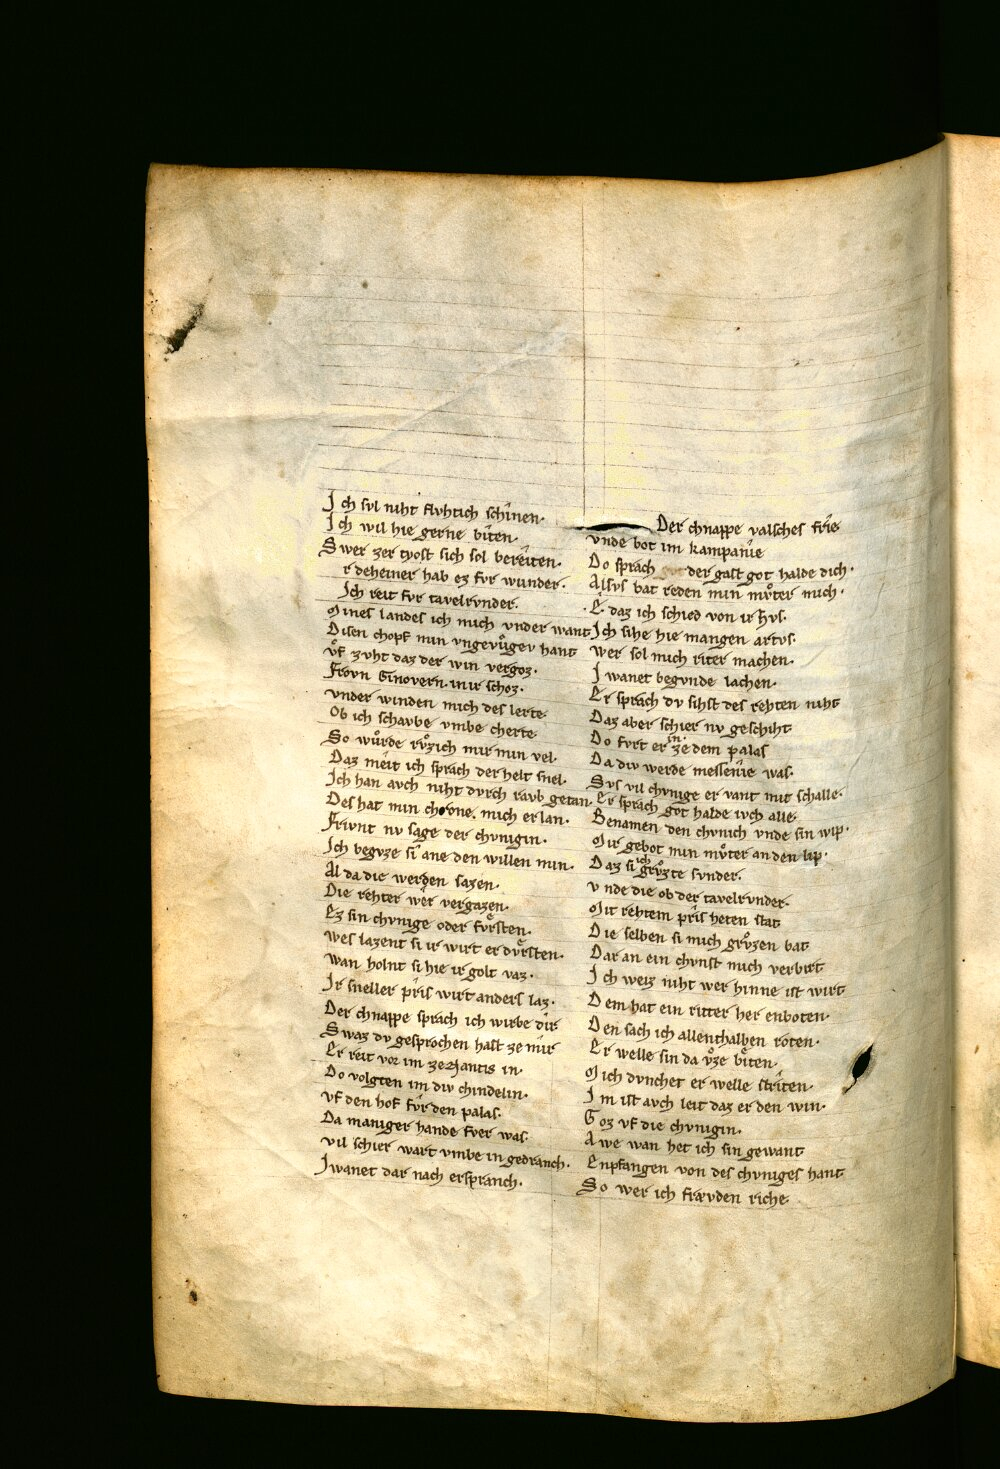 Ich svl niht flvhtich schinen·
Ich wil hie gerne biten·
Swer zer tyost sich sol bereiten·
r deheiner hab ez fvr wunder·
Ich reit fvr tavelrvnder·
Mines landes ich mich vnder want
Disen chopf min vngevͦger hant
vͦf zvht daz der win vergoz·
Frovn Ginovern in ir schoz·
vnder winden mich des lerte
Ob ich schavbe vmbe cherte
So wuͦrde rvͦzich mir min vel·
Daz meit ich sprach der helt snel·
Ich han avch niht dvrch ravb getan·
Des hat min chrone mich erlan·
Frivnt nv sage der chvnigin·
Ich begvze si ane den willen min·
Al da die werden sazen·
Die rehter wer vergazen·
Ez sin chvnige oder fvͤrsten·
wes lazent si ir wirt er dvͤrsten·
wan holnt si hie ir golt vaz·
Ir sneller pris wirt anders laz·
Der chnappe sprach ich wirbe dir
Swaz dv gesprochen hast ze mir
Er reit von im ze Nantis in·
Do volgten im div chindelin·
vf den hof fvr den palas·
Da maniger hande fver was·
vil schier wart vmbe in gedranch·
Iwanet dar nach ersprranch·
Der chnappe valsches frie
vnde bot im kampanie
Do sprach der gast got halde dich·
Alsvs bat reden min mvͦter mich·
E· daz ich schied von ir hvs·
Ich sihe hie mangen artvs·
wer sol mich riter machen·
Iwanet begvnde lachen·
Er sprach dv sihst des rehten niht
Daz aber schier nv geschiht
Do fvrt er in ze dem palas
Da div werde messenie was·
Svs vil chvnige er vant mit schalle·
Er sprach got halde ivch alle·
Benamen den chvnich vnde sin wip·
Mir gebot min mvͦter an den lip·
Daz si ich grvͦzte svnder·
vnde die ob der tavelrvnder·
Mit rehtem pris heten stat
Die selben si mich grvͦzen bat
Dar an ein chvnst mich verbirt
Ich weiz niht wer hinne ist wirt
Dem hat ein ritter her enboten·
Den sach ich allenthalben roten·
Er welle sin da vͦze biten·
Mich dvnchet er welle striten·
Im ist avch leit daz er den win·
Goz vf die chvnigin·
Awe wan het ich sin gewant
Enpfangen von des chvniges hant
So wer ich frævden riche